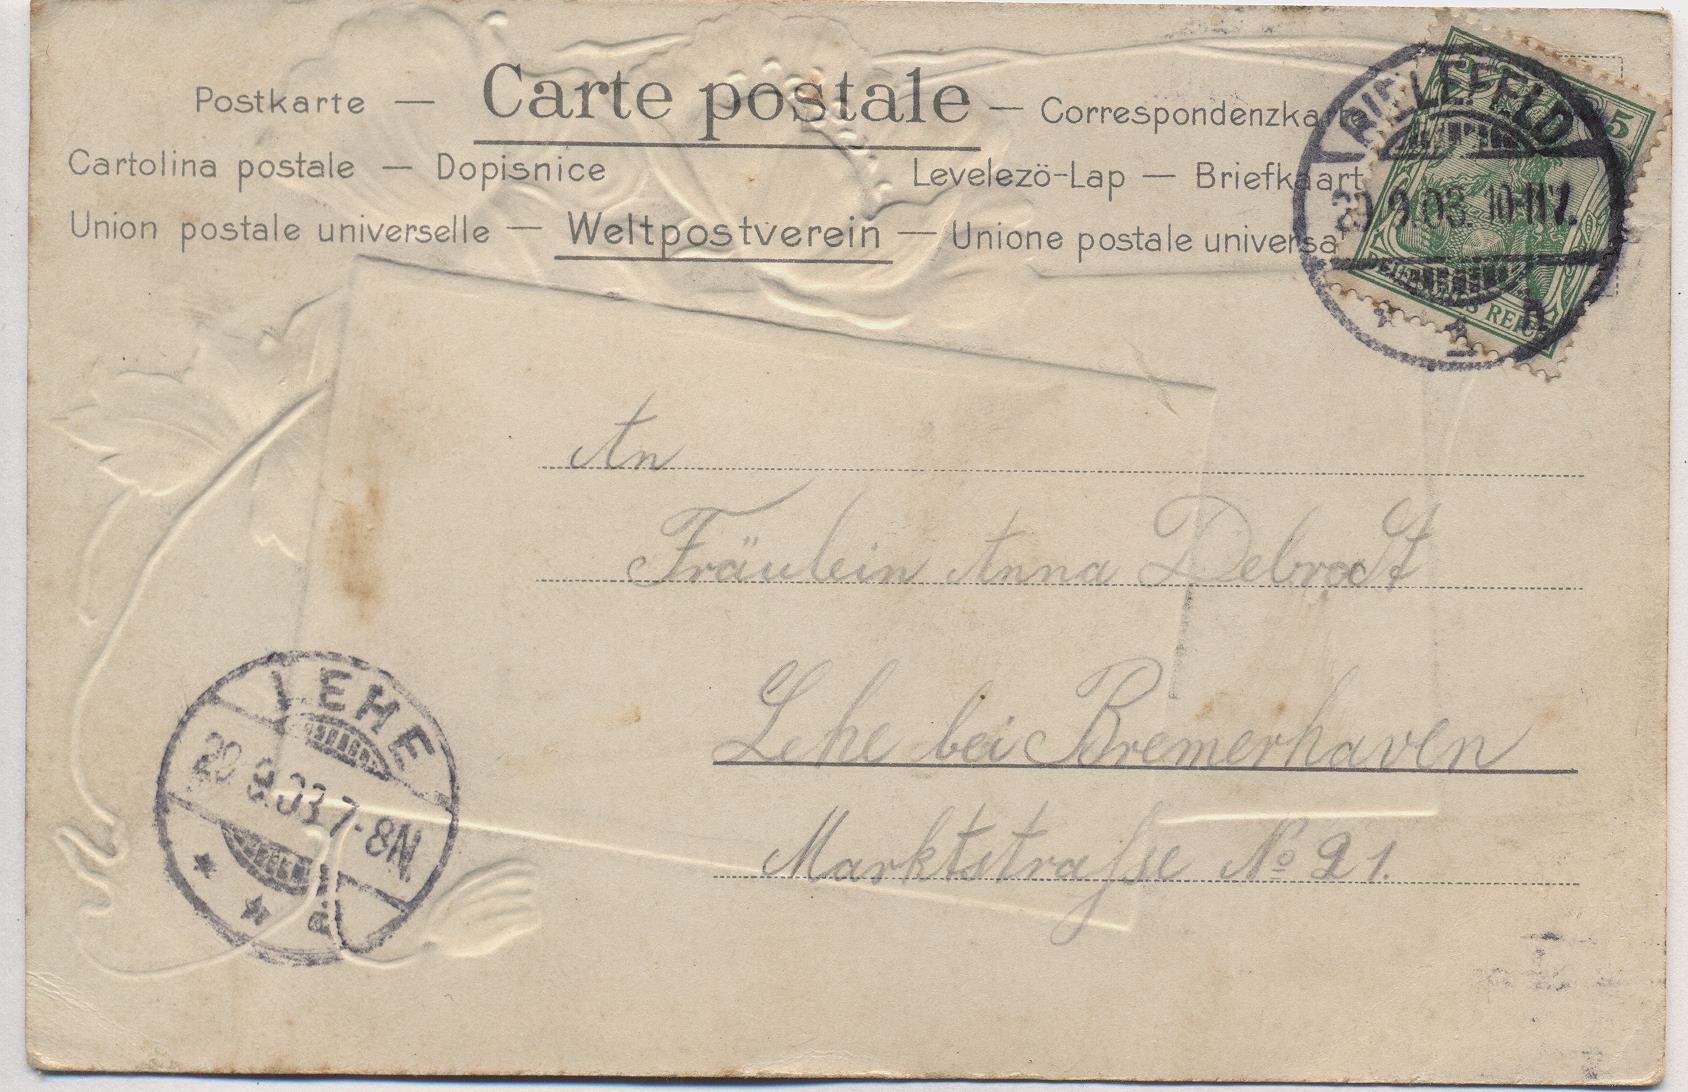 Postkarte — Carte postale — Correspondenzkarte
Cartolina postale — Dopisnice Levelezö-Lap — Briefkaart
Union postale universelle — Weltpostverein — Unione postale universa
5
DEUTSCHES REICH
BIELEFELD
20.9.03. 10-11V.
* 1 n
An
Fräulein Anna Debrodt
Lehe bei Bremerhaven
Marktstraſse № 21.
LEHE
20.9.03. 7-8N.
* * a.